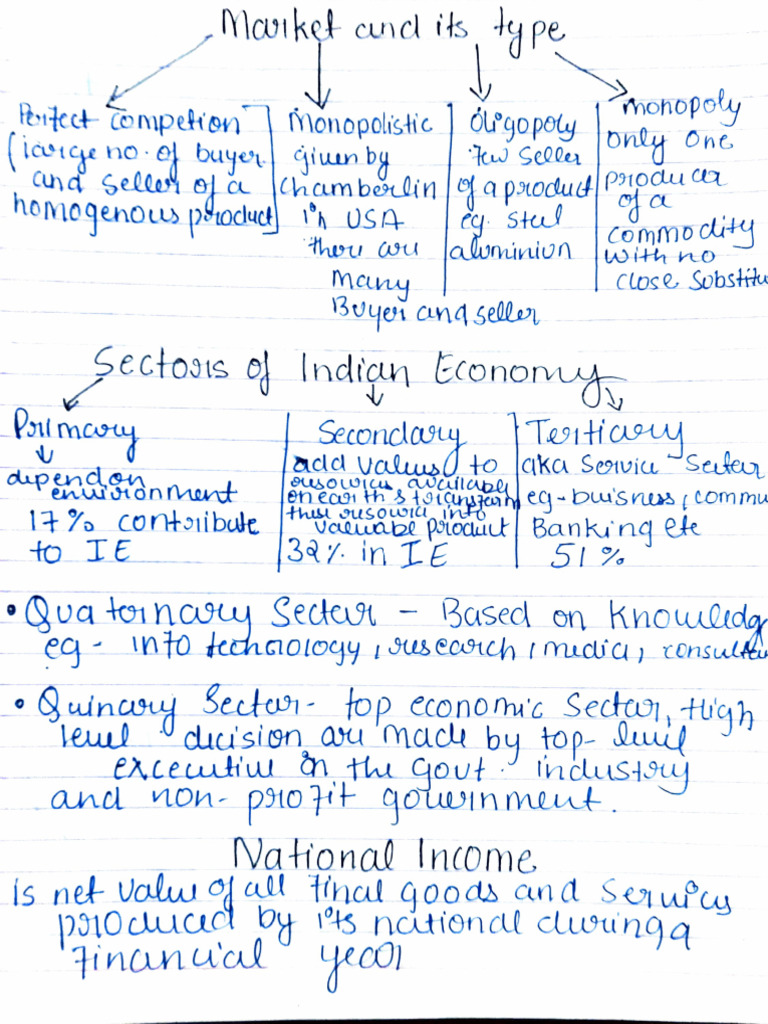 Market and its type
Perfect competion
(large no. of buyer
and seller of a
homogenous product]
Monopolistic
given by
chamberlin
in USA
there are
many
Buyer and seller
Oligopoly
Few Seller
of a product
eg. steel
aluminion
monopoly
only one
producer
of a
commodity
with no
close Substitu
Sectors of Indian Economy
Primary
depend on
environment
17% contribute
to IE
Secondary
add values to
resources available
on earth & transform
these resource into
valuable product
32% in IE
Tertiary
aka Service Sector
eg - buisness, commu
Banking etc
51%
• Quaternary Sector - Based on Knowledg
eg - info technology, research, media, consulta
• Quinary Sector - top economic Sector, High
level decision are made by top-level
excecutive in the govt. industry
and non-profit government.
National Income
is net value of all final goods and Services
produced by its national during a
financial year